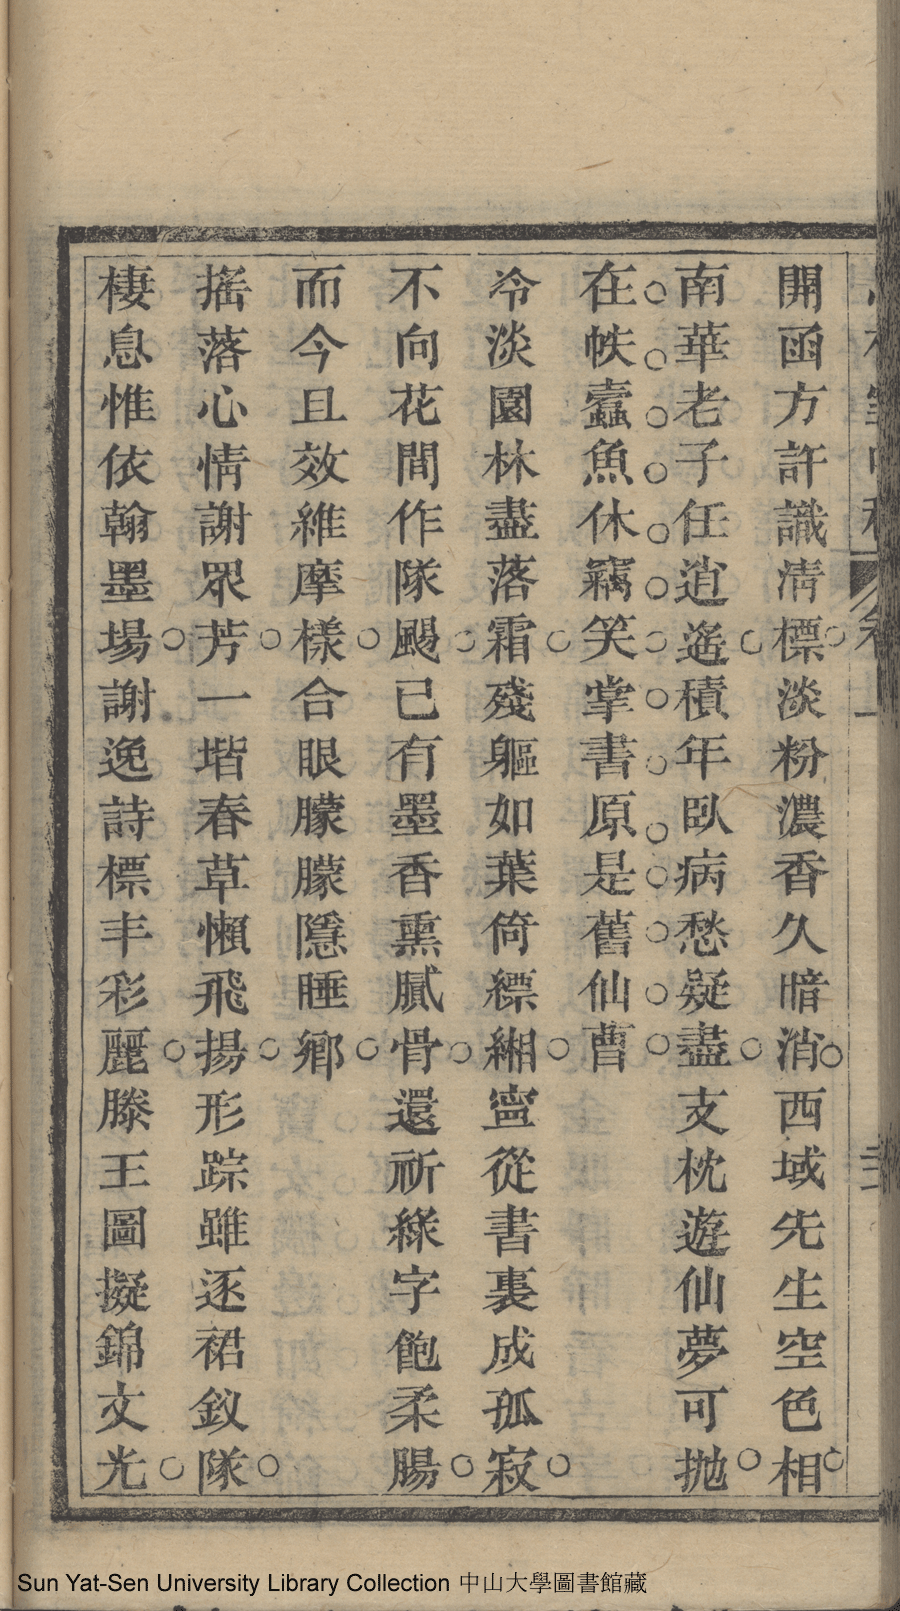 開函方許識淸標淡粉濃香久暗消西域先生空色相
南華老子任逍遙積年臥病愁疑盡支枕遊仙夢可拋
在帙蠹魚休竊笑掌書原是舊仙曹
冷淡園林盡落霜殘軀如葉倚縹緗寧從書裏成孤寂
不向花間作隊颺已有墨香熏膩骨還祈綠字飽柔腸
而今且效維摩樣合眼朦朦隱睡鄉
搖落心情謝眾芳一堦春草懶飛揚形踪雖逐裙釵隊
棲息惟依翰墨場謝逸詩標丰彩麗滕王圖擬錦文光
Sun Yat-Sen University Library Collection 中山大學圖書館藏